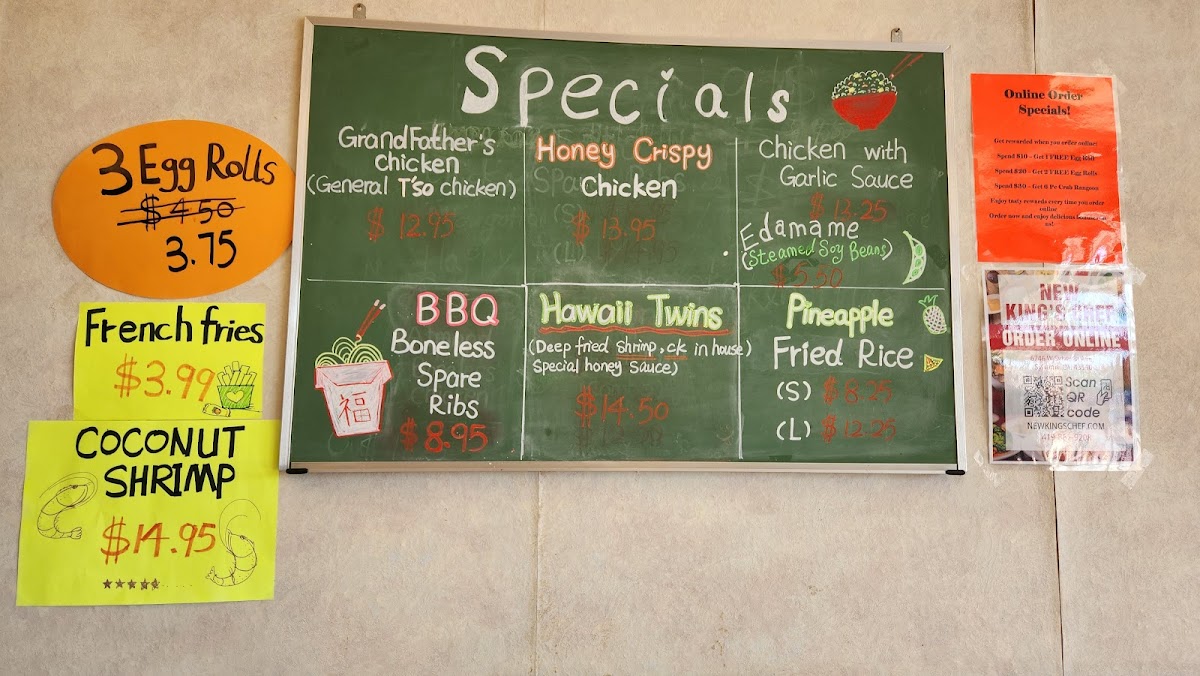 3 Egg Rolls
$4.50
3.75
French fries
$3.99
COCONUT
SHRIMP
$14.95
Specials
GrandFather's
chicken
(General T'so chicken)
$12.95
Honey Crispy
Chicken
$13.95
Chicken with
Garlic Sauce
$13.25
Edamame
(Steamed Soy Beans)
$5.50
BBQ
Boneless
Spare
Ribs
$8.95
福
Hawaii Twins
(Deep fried shrimp, ck in house)
Special honey sauce)
$14.50
Pineapple
Fried Rice
(S) $8.25
(L) $12.25
Online Order
Specials!
Get rewarded when you order online!
Spend $10 - Get 1 FREE Egg Roll
Spend $20 - Get 2 FREE Egg Rolls
Spend $30 - Get 6 Pc Crab Rangoon
Enjoy tasty rewards every time you order
online
Order now and enjoy delicious
NEW
KING'S CHEF
ORDER ONLINE
Scan
QR
code
NEWKINGSCHEF.COM